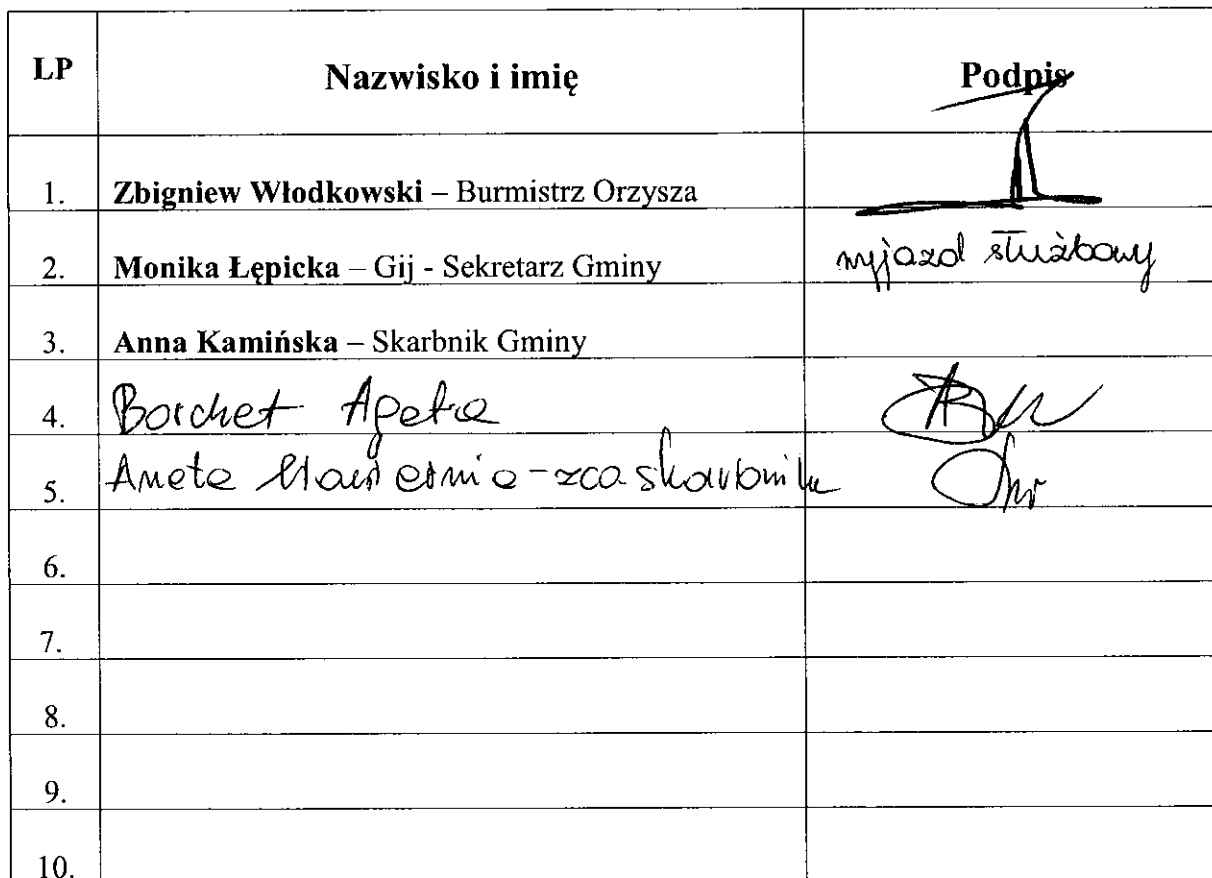 LP Nazwisko i imię Podpis
1. Zbigniew Włodkowski – Burmistrz Orzysza
2. Monika Łępicka – Gij - Sekretarz Gminy wyjazd służbowy
3. Anna Kamińska – Skarbnik Gminy
4. Borchet Agata
5. Aneta - zca skarbnika
6.
7.
8.
9.
10.